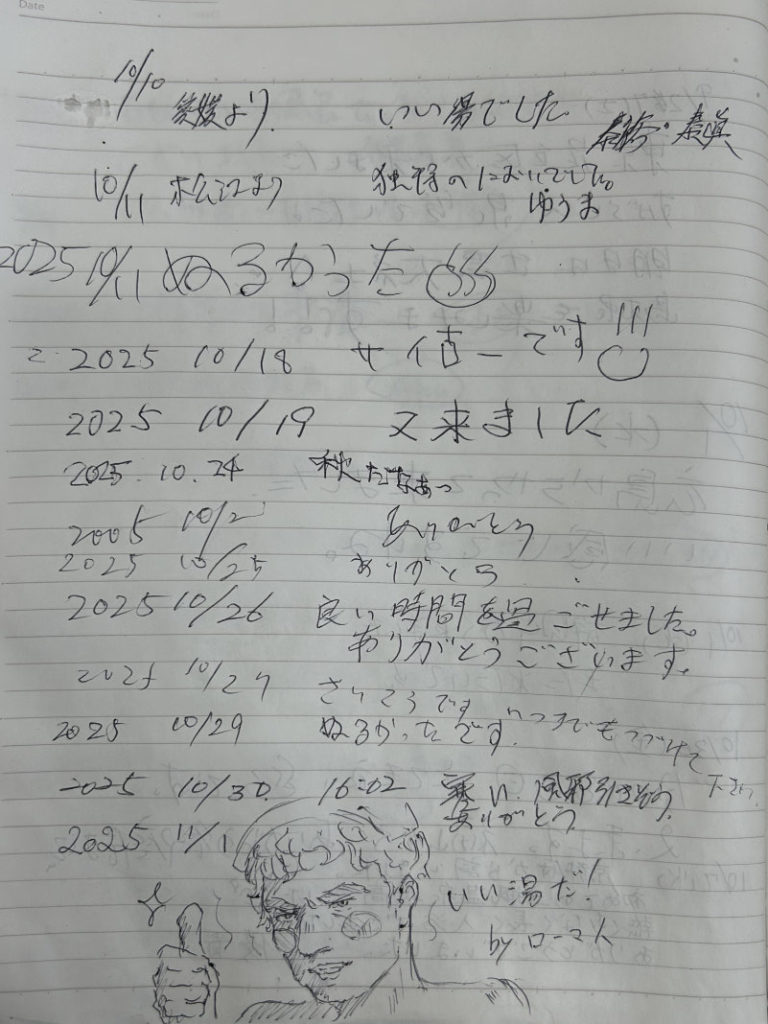 Date
10/10 愛媛より いい湯でした
10/11 松江より 独特のにおいでした。
ゆうま
2025 10/11 ぬるかった
2025 10/18 サ イ古ーです!!!
2025 10/19 又来ました
2025.10.24 秋だなあっ
2005 10/2 ありがとう
2025 10/25 ありがとう
2025 10/26 良い時間を過ごせました。
ありがとうございます。
2025 10/27 さいこうです いつまでもつづけて下さい
2025 10/29 ぬるかったです.
2025 10/30. 16:02 寒い. 風邪引きそう.
ありがとう
2025 11/1
いい湯だ!
by ローマ人